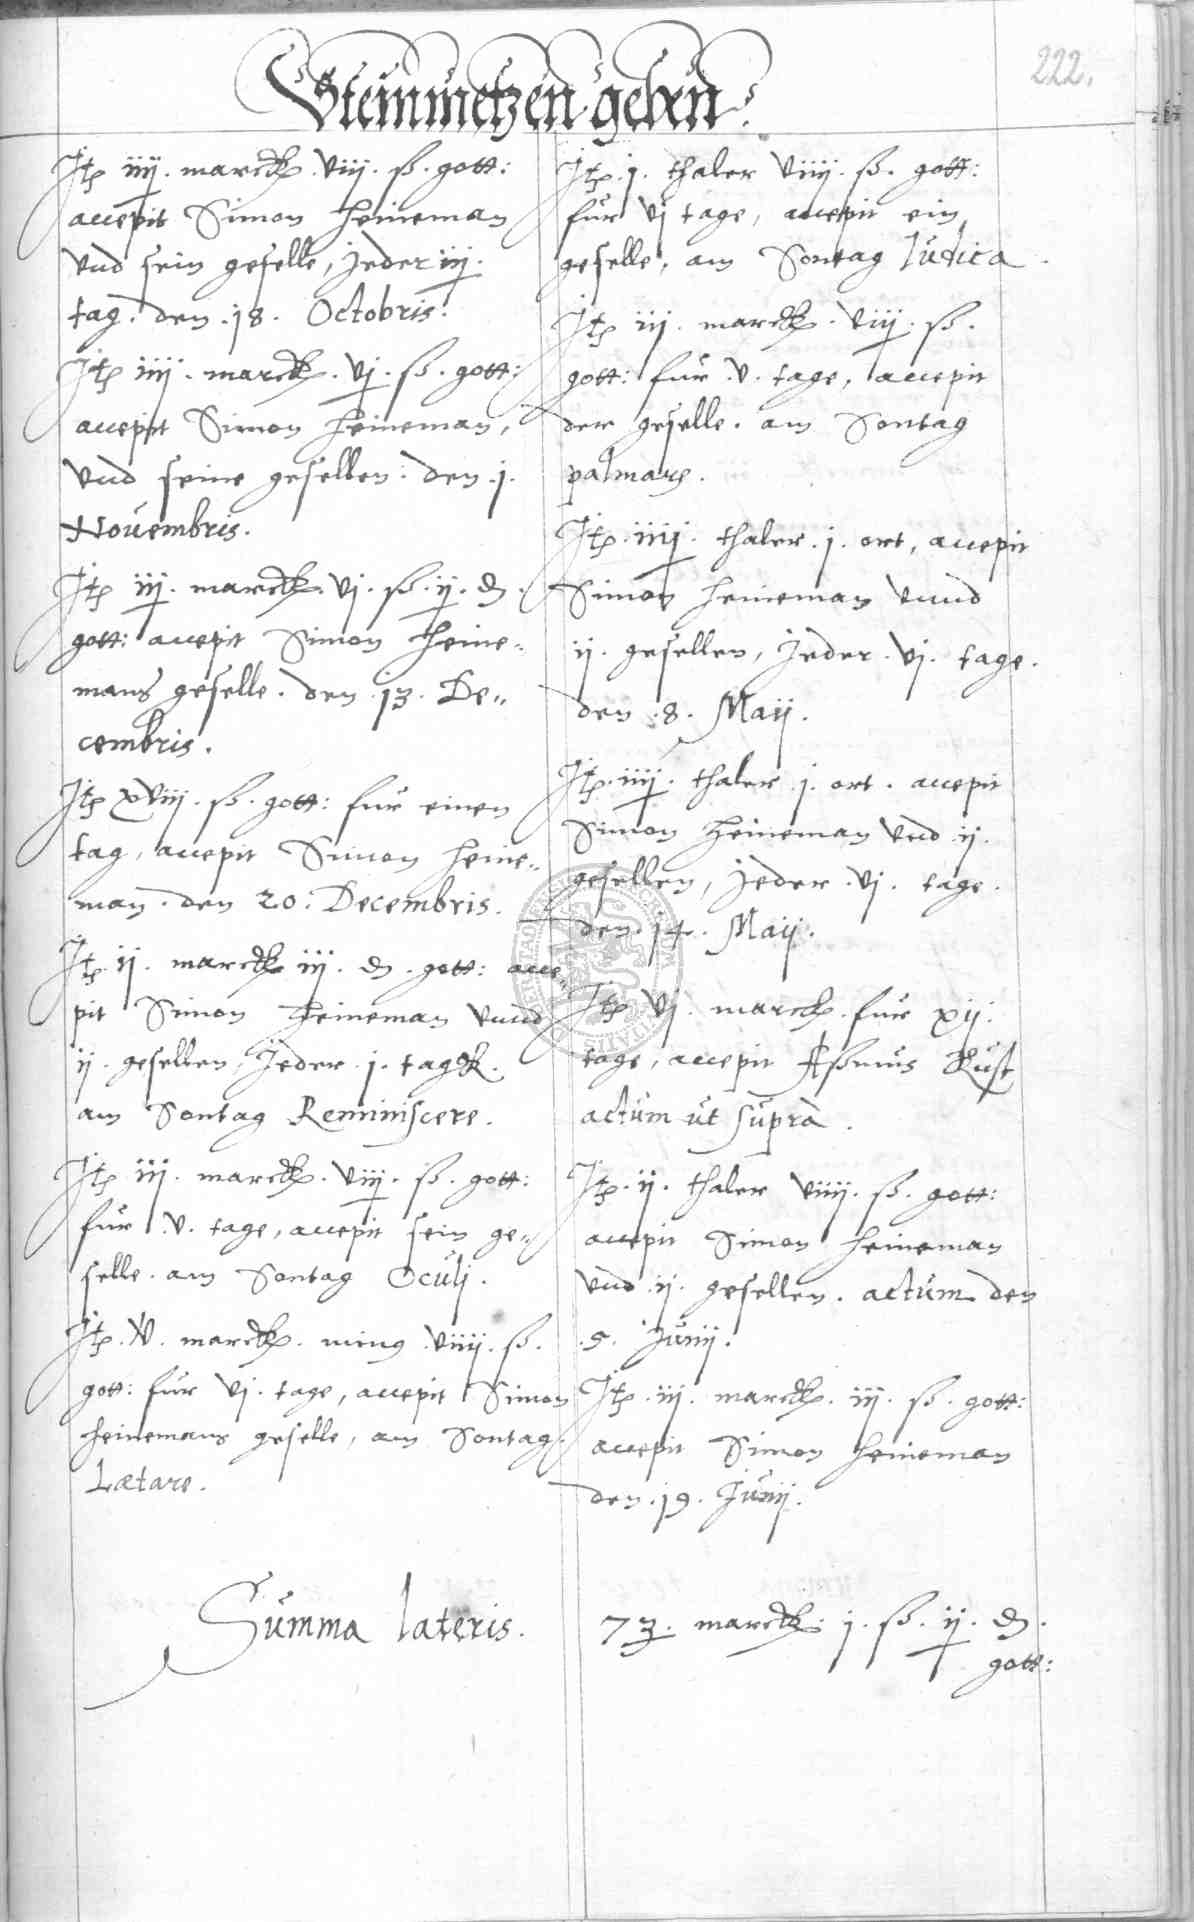 222.
Steinmetzen geben
Itē iiij. marck. viij. ß. gott:
accepit Simon Heineman
vnd sein geselle, Jeder iij.
tag. den .18. Octobris.
Itē iiij. marck. vj. ß. gott:
accepit Simon Heineman,
vnd seine gesellen: den .j.
Novembris.
Itē iij. marck. vj. ß. ij. ₰.
gott: accepit Simon Heine-
mans geselle. den .13. De-
cembris.
Itē xviij. ß. gott: fur einen
tag, accepit Simon Heine-
man. den 20: Decembris.
Itē ij. marck iij. ₰. gott: acce-
pit Simon Heineman vnnd
ij. gesellen, Jeder .j. tagk.
am Sontag Reminiscere.
Itē iij. marck. viij. ß. gott:
fur .v. tage, accepit sein ge-
selle. am Sontag Oculj.
Itē .v. marck. minus viiij. ß.
gott: fur vj. tage, accepit Simon
Heinemans geselle, am Sontag
Lætare.
Itē .j. thaler viiij. ß. gott:
fur vj tage, accepit ein
geselle, am Sontag Iudica.
Itē iij. marck. viij. ß.
gott: fur .v. tage, accepit
der geselle. am Sontag
palmarū.
Itē .iiij. thaler .j. ort, accepit
Simon Heineman vnnd
ij. gesellen, Jeder .vj. tage.
den .8. Maij.
Itē .iiij. thaler .j. ort. accepit
Simon Heineman vnd .ij.
gesellen, Jeder .vj. tage.
den .14. Maij.
Itē vj. marck. fur xij.
tage, accepit Aßmus Rust
actum ut supra.
Itē .ij. thaler viiij. ß. gott:
accepit Simon Heineman
vnd .ij. gesellen. actum den
.5. Junij.
Itē .iij. marck. iij. ß. gott:
accepit Simon Heineman
den .19. Junij.
Summa lateris. 73. marck. j. ß. ij. ₰.
gott: